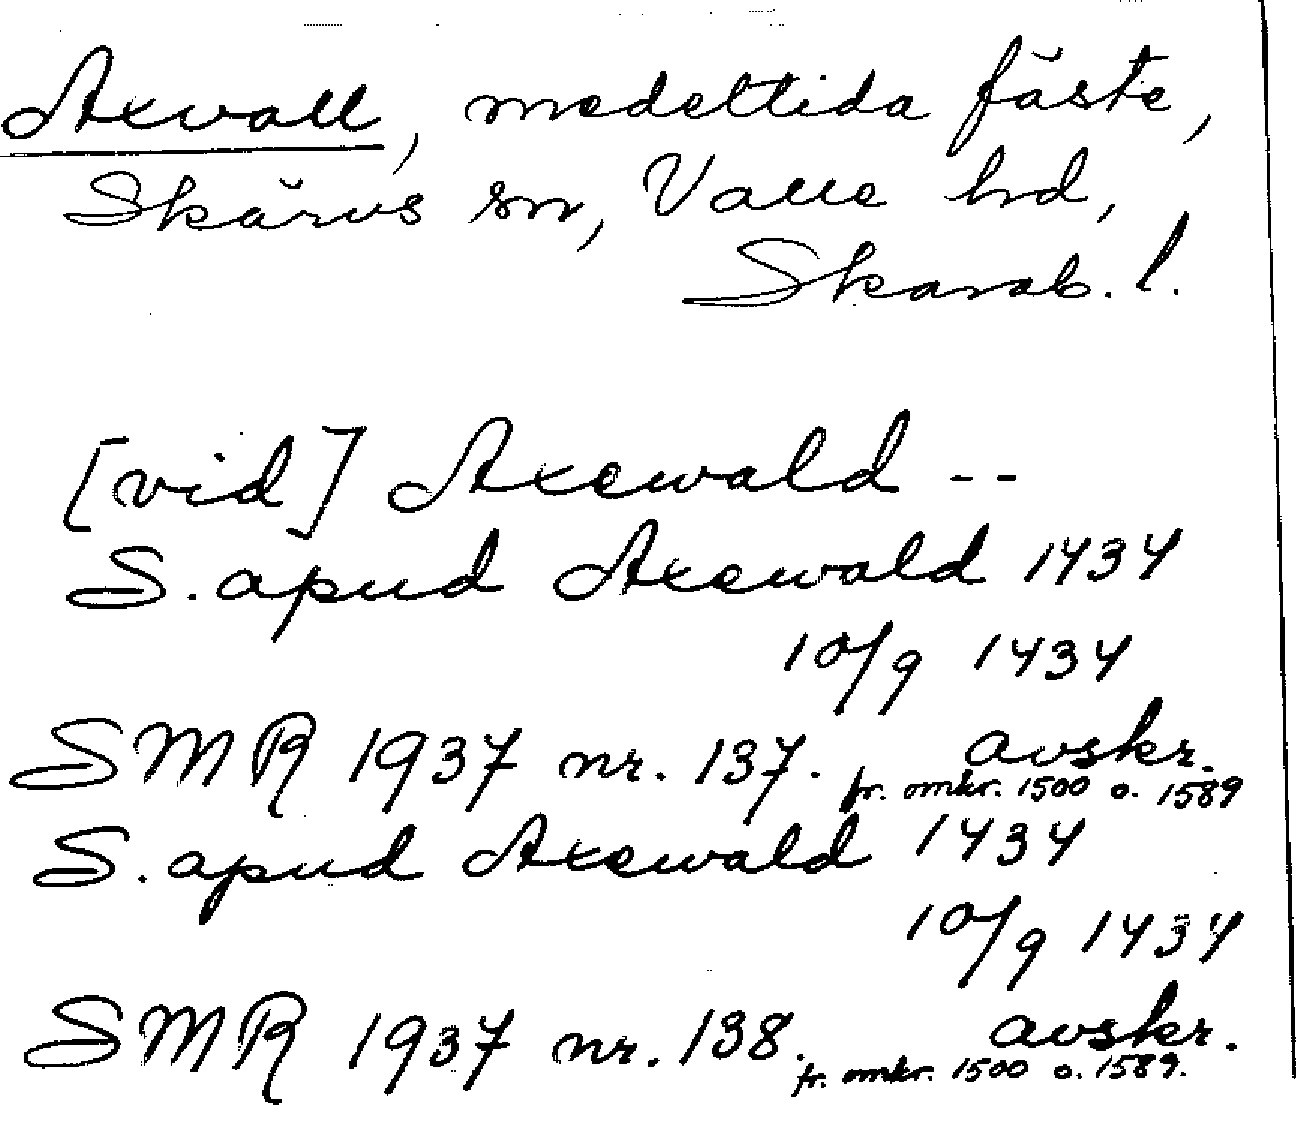 Axvall, medeltida fäste,
Skärvs sn, Valle hd,
Skarab. l.
[vid] Axewald --
S. apud Axewald 1434
10/9 1434
SMR 1937 nr. 137. avskr.
fr. omkr. 1500 o. 1589
S. apud Axewald 1434
10/9 1434
SMR 1937 nr. 138. avskr.
fr. omkr. 1500 o. 1589.